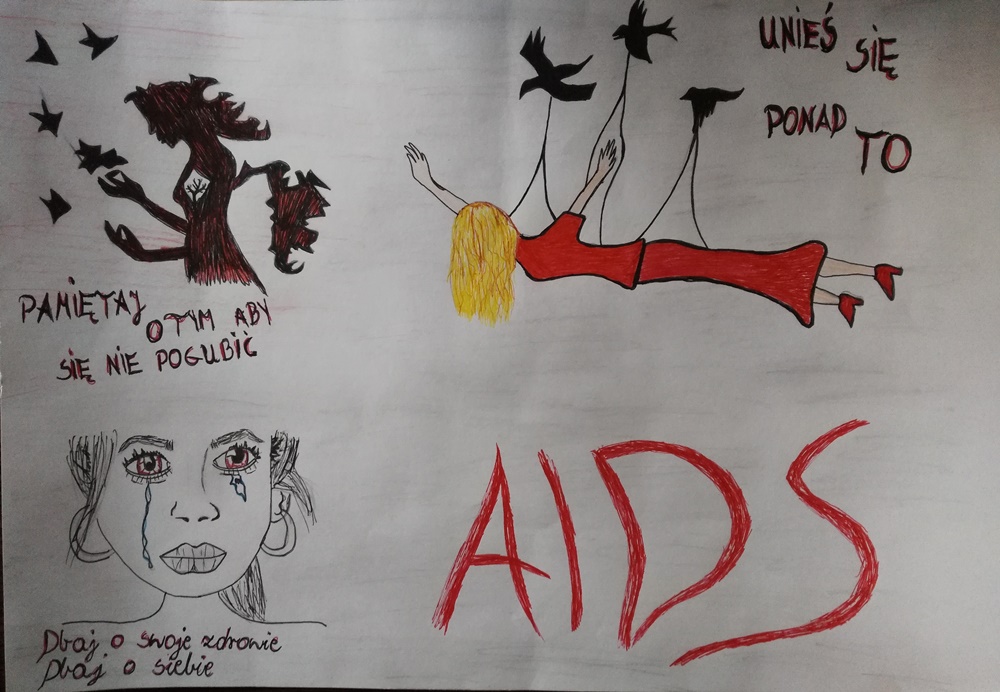 UNIEŚ SIĘ
PONAD TO
PAMIĘTAJ
O TYM ABY
SIĘ NIE POGUBIĆ
AIDS
Dbaj o swoje zdrowie
Dbaj o siebie